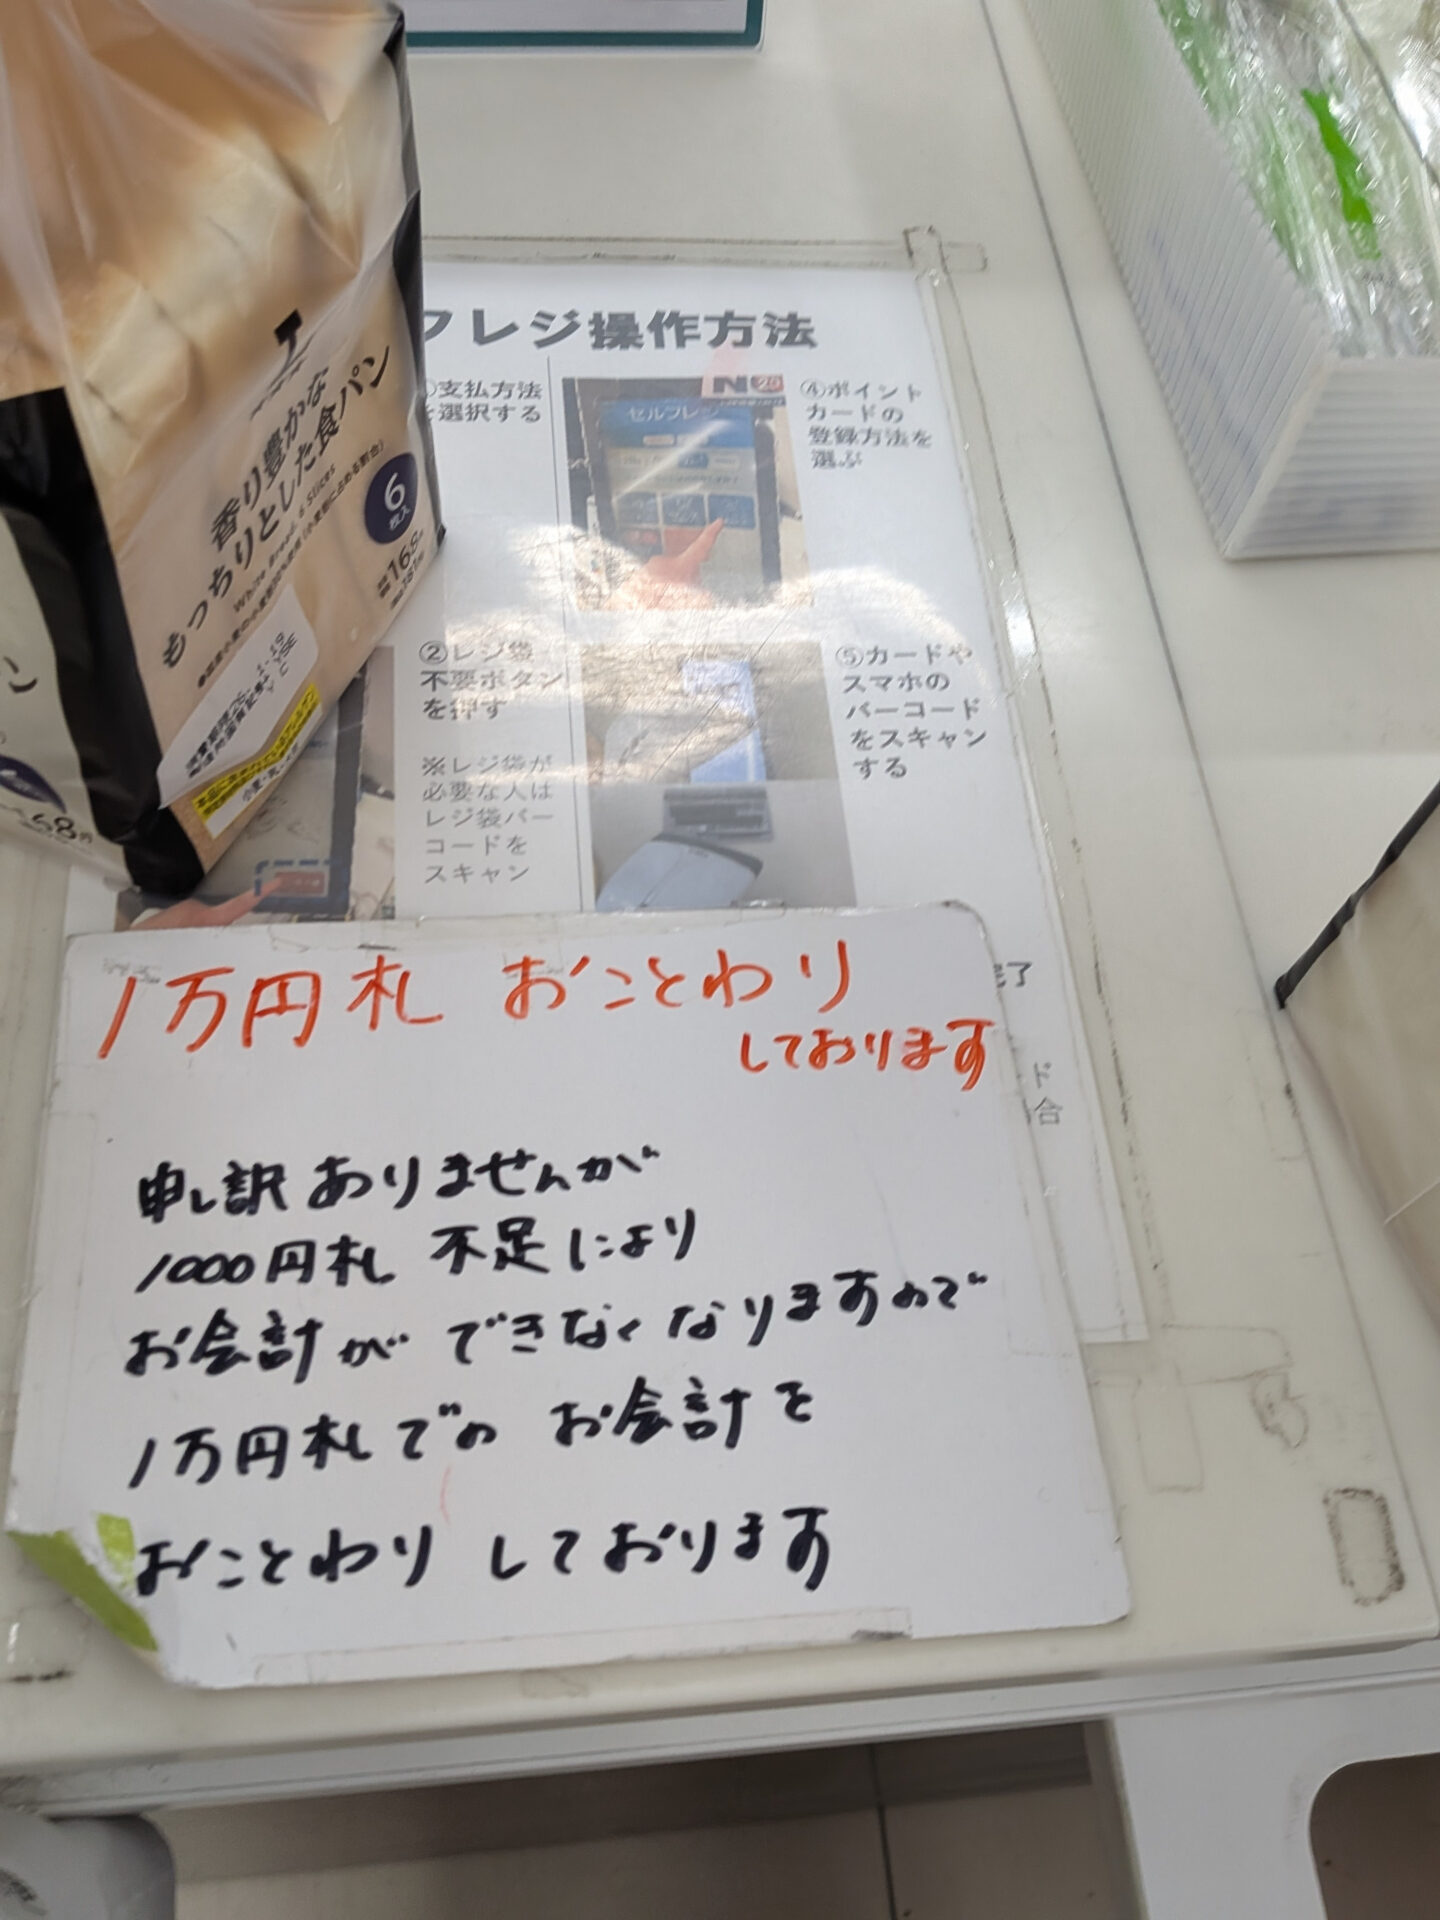 フレジ操作方法
①支払方法
を選択する
セルフレジ
④ポイント
カードの
登録方法を
選ぶ
②レジ袋
不要ボタン
を押す
※レジ袋が
必要な人は
レジ袋バー
コードを
スキャン
⑤カードや
スマホの
バーコード
をスキャン
する
香り豊かな
もっちりとした食パン
White Bread, 6 Slices
6
枚入
168
1万円札 おことわり
しております
申し訳ありませんが
1000円札 不足により
お会計ができなくなりますので
1万円札での お会計を
おことわり しております